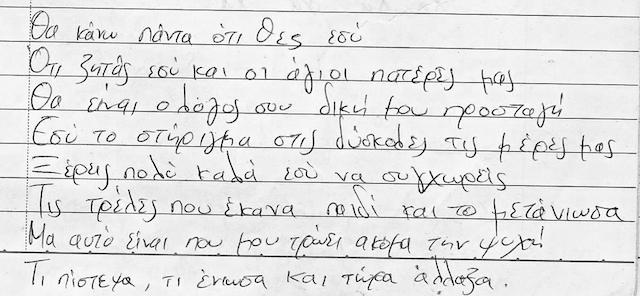 Θα κάνω πάντα ότι θες εσύ
Ότι ζητάς εσύ και οι άγιοι πατέρες μας
Θα είναι ο λόγος σου δική μου προσταγή
Εσύ το στήριγμα στις δύσκολες τις μέρες μας
Ξέρεις πολύ καλά εσύ να συγχωρείς
Τις τρέλες που έκανα παιδί και το μετάνιωσα
Μα αυτό είναι που μου τρώει ακόμα την ψυχή
Τι πίστεψα, τι ένιωσα και τώρα άλλαξα.